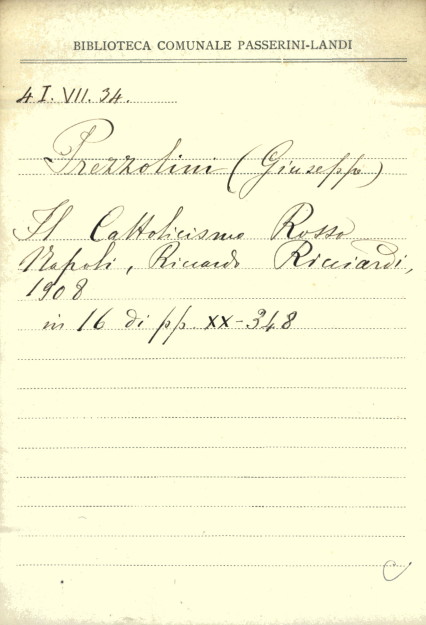 BIBLIOTECA COMUNALE PASSERINI-LANDI
4 I. VII. 34.
Prezzolini (Giuseppe)
Il Cattolicismo Rosso
Napoli, Riccardo Ricciardi,
1908
in 16 di pp. XX-348